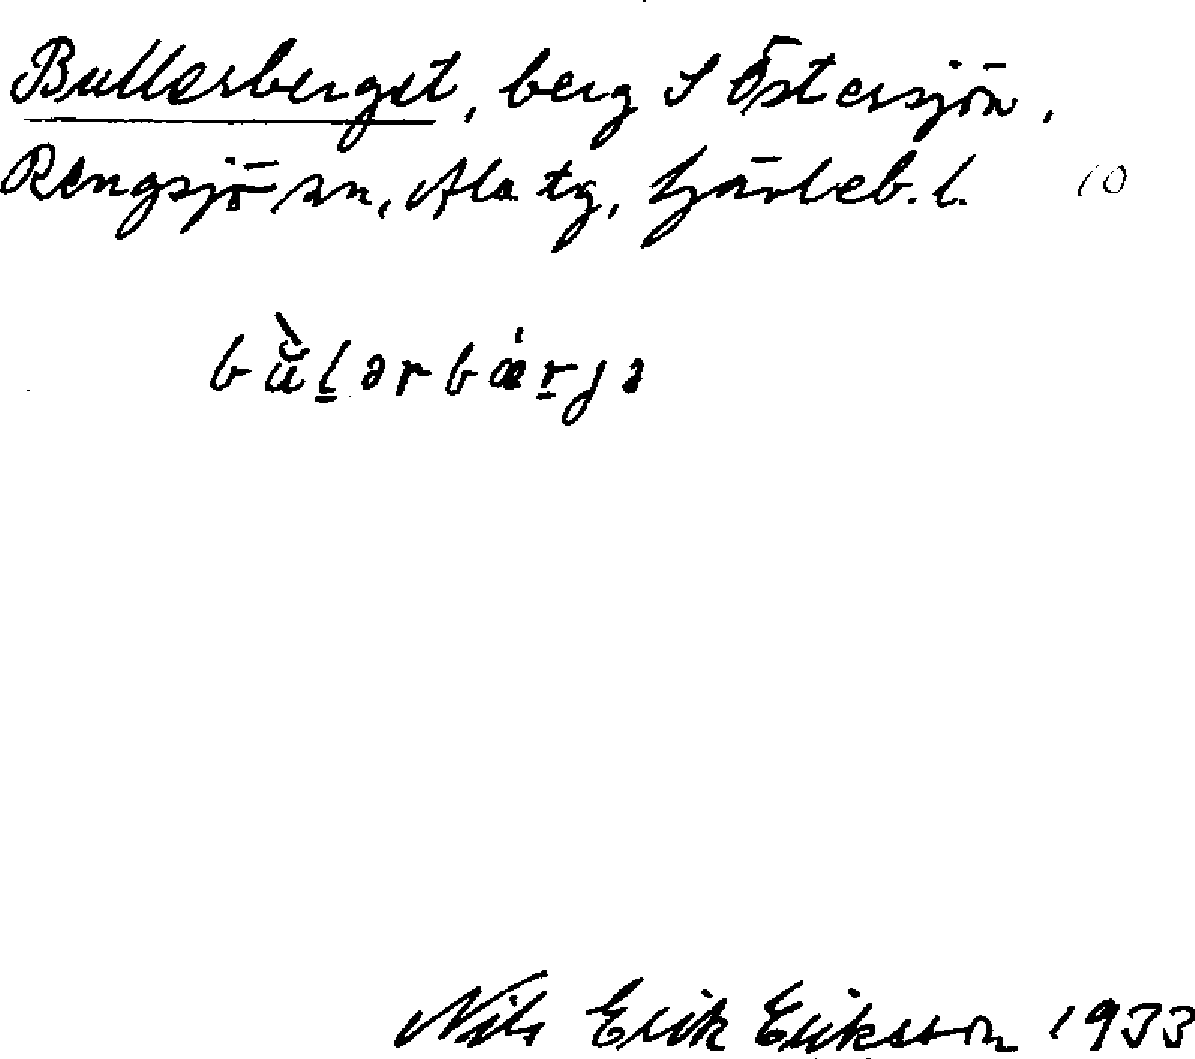 Bullerberget, berg S Östersjön,
Rengsjö sn, Ala tg, Gävleb. l. 10
bùl̠ərbǽr̠jə
Nils Erik Eriksson 1933